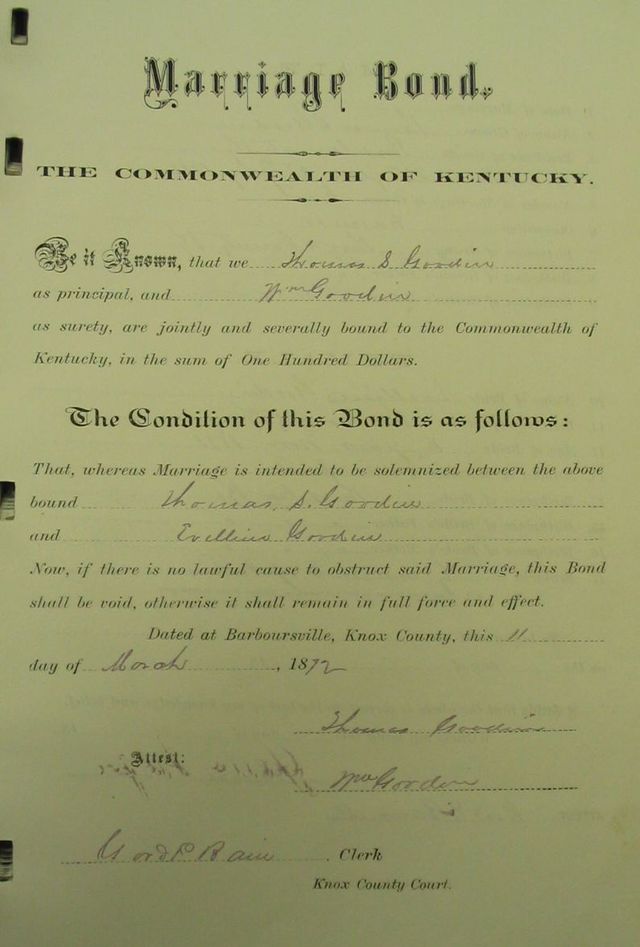 Marriage Bond.
THE COMMONWEALTH OF KENTUCKY.
Be it Known, that we Thomas S. Goodin
as principal, and Wm Goodin
as surety, are jointly and severally bound to the Commonwealth of
Kentucky, in the sum of One Hundred Dollars.
The Condition of this Bond is as follows:
That, whereas Marriage is intended to be solemnized between the above
bound Thomas. S. Goodin
and Evelline Goodin
Now, if there is no lawful cause to obstruct said Marriage, this Bond
shall be void, otherwise it shall remain in full force and effect.
Dated at Barboursville, Knox County, this 11
day of March, 1872
Thomas Goodin
Attest:
Wm Goodin
Clerk
Knox County Court.